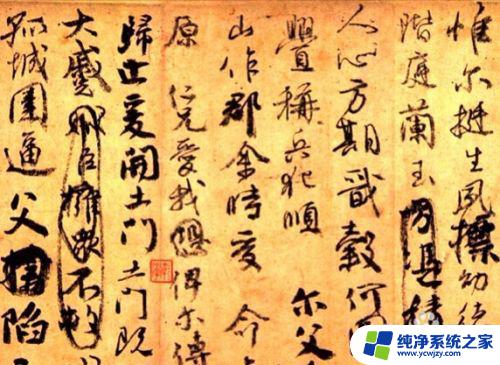 惟尔挺生夙標幼德
階庭蘭玉方憑積
人心方期戩穀何
覺稱兵犯順尔父
山作郡余時受命
原仁兄愛我恐俾尔傳
歸止爰開土門土門既
大蹙賊臣擁衆不救
孤城圍逼父擒陷
纯净系统之家
www.ycwjzy.com